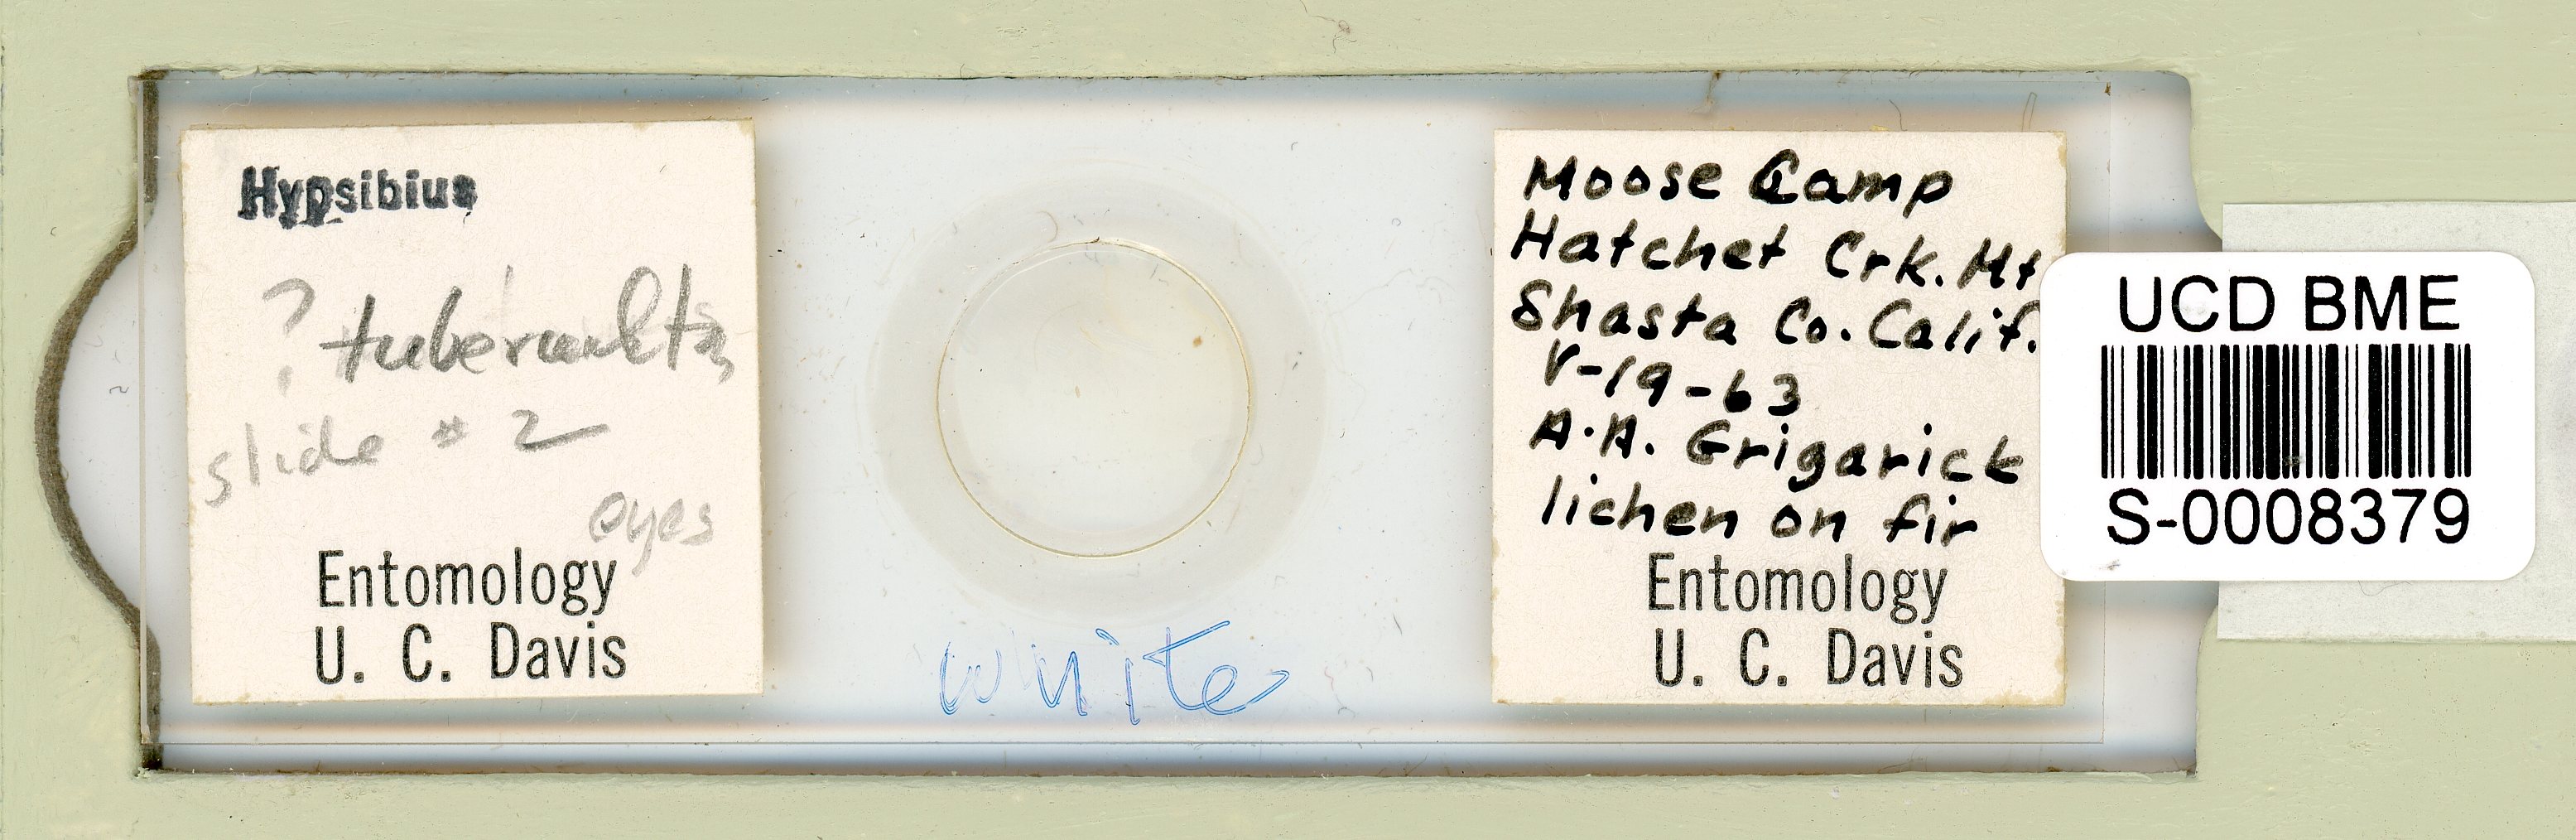 Hypsibius
?
slide # 2
eyes
Entomology
U. C. Davis
white
Moose Camp
Hatchet Crk. Mt
Shasta Co. Calif.
V-19-63
A.A. Grigarick
lichen on fir
Entomology
U. C. Davis
UCD BME
S-0008379